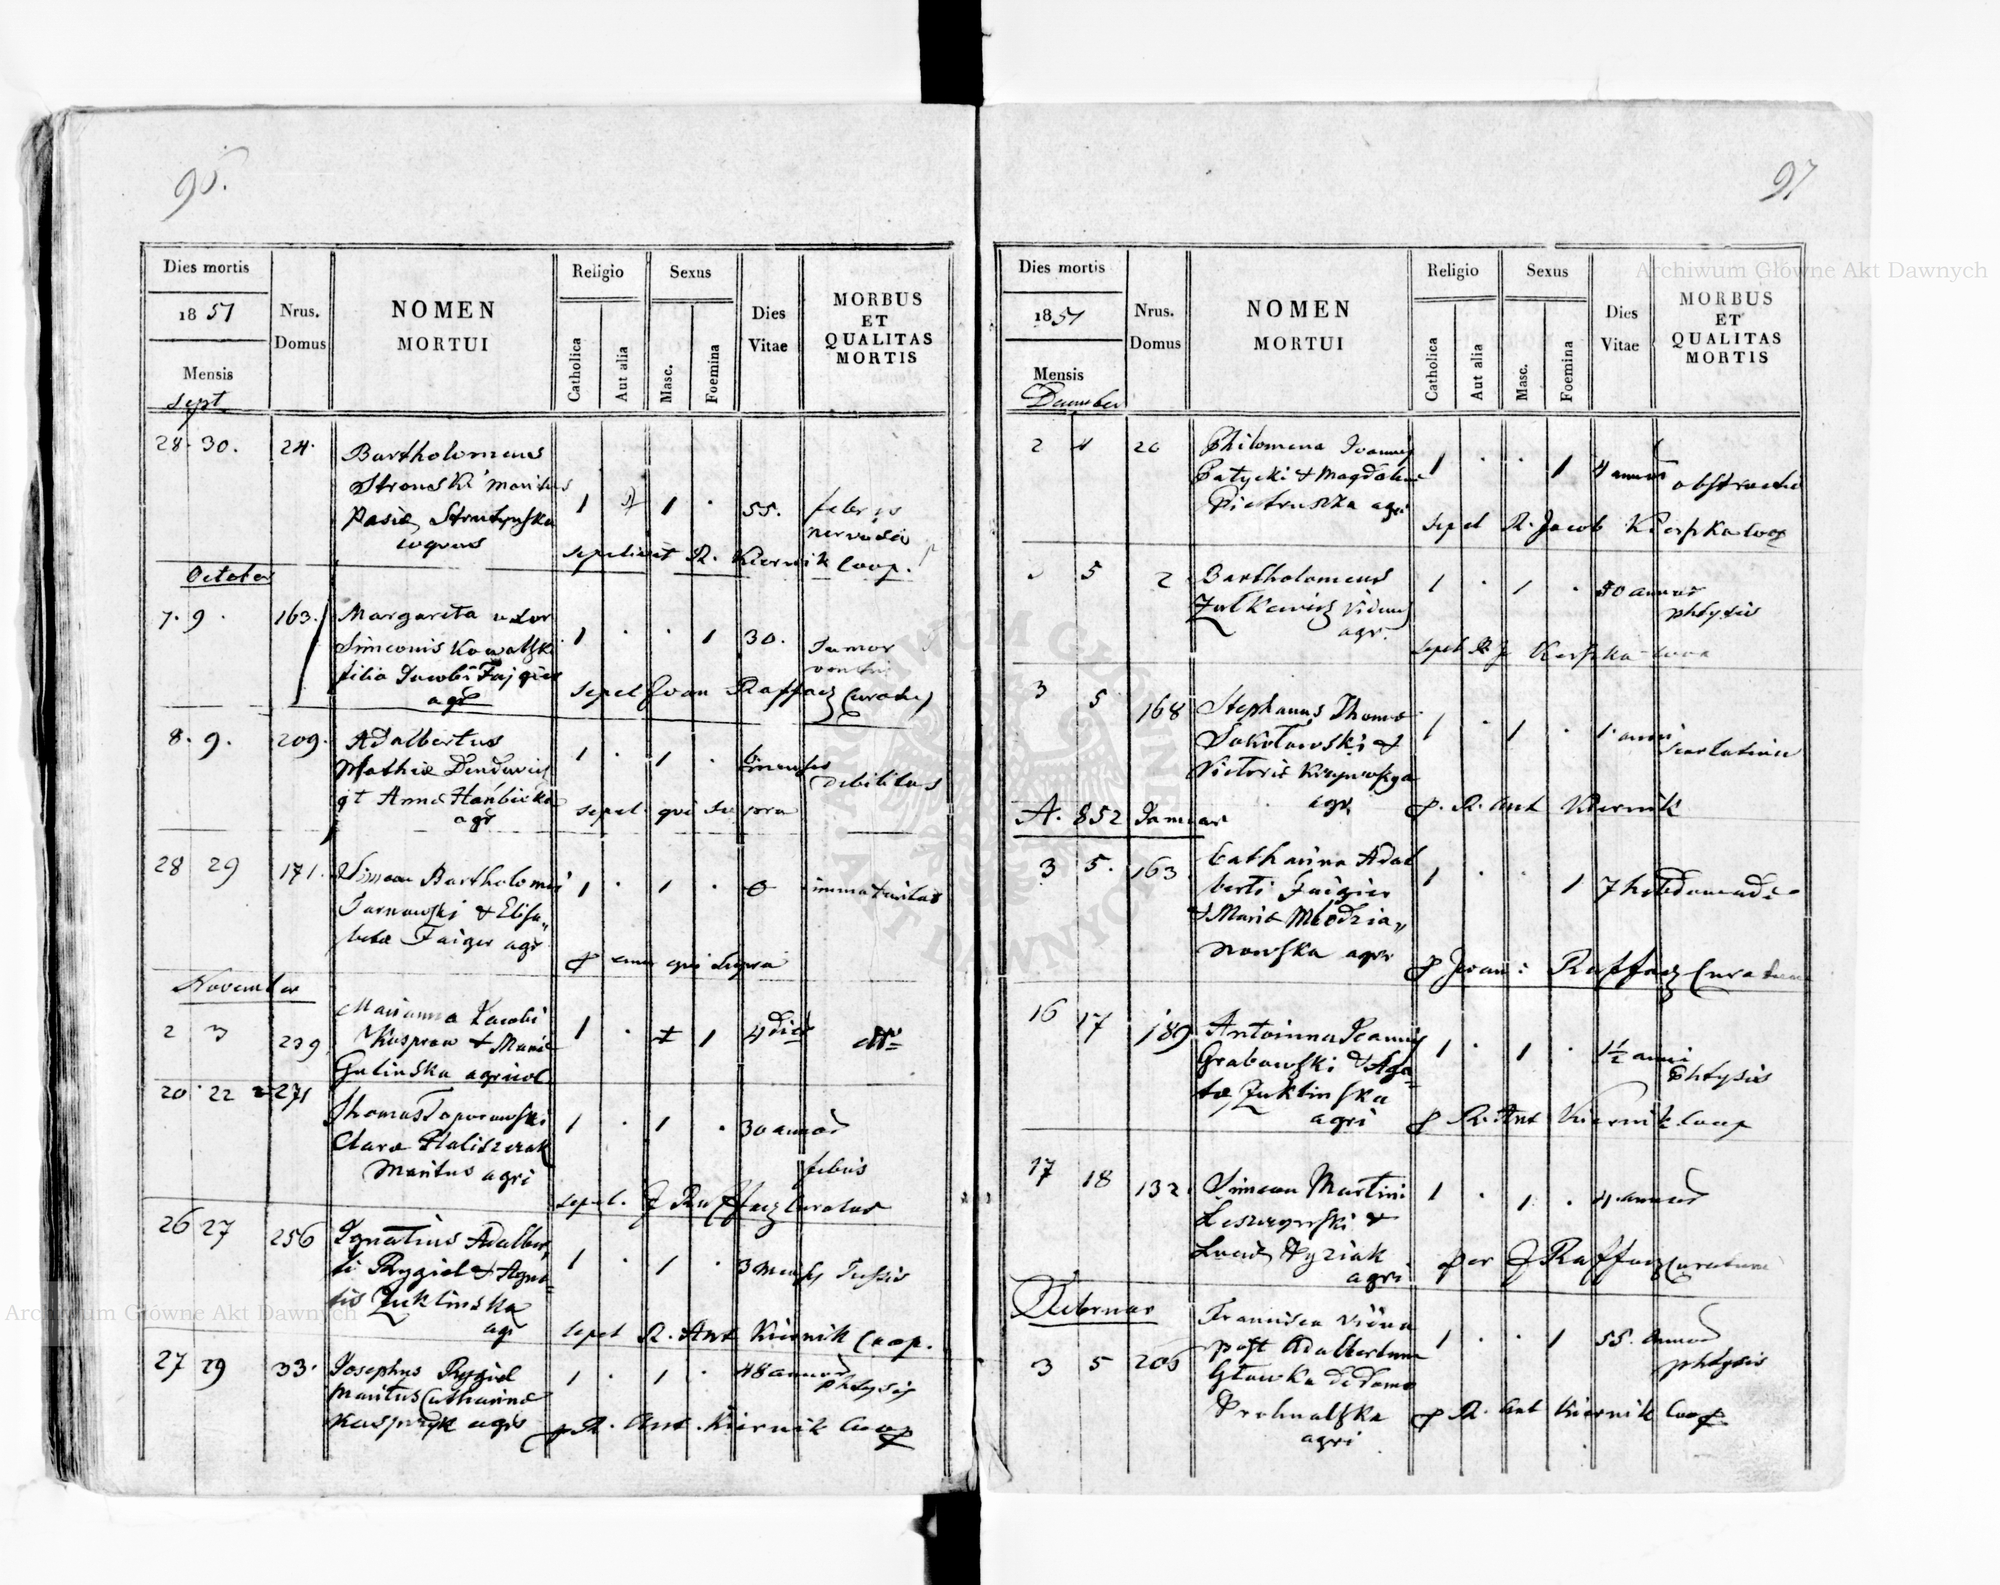 96.
Dies mortis
1851
Mensis
Sept
Nrus.
Domus
NOMEN
MORTUI
Religio
Catholica
Aut alia
Sexus
Masc.
Foemina
Dies
Vitae
MORBUS
ET
QUALITAS
MORTIS
28. 30. 24. Bartholomeus
Stronski maritus
Pasie Strutynska
coquus
1 1 . 55. febris
nervosa
sepelivit R. Kiernik Coop.
October
7. 9. 163. Margareta uxor
Simeonis Kowalski
filia Jacobi Fajgier
agr
1 . . 1 30. Tumor
ventri
sepel Joan Raffacz Curatus
8. 9. 209. Adalbertus
Mathie Denderis
et Anne Hanbicka
agr
1 . 1 . 6 menses
Debilitas
sepel qui supra
28 29 171. Simeon Bartholomei
Tarnawski & Elisa„
betæ Faiger agr
1 . 1 . 0 immaturitas
p eum qui supra
November
2 3 239 Marianna Jacobi
Kasprow & Marie
Galinska agricol
1 . 1 4 dies dtt=
20. 22 271 Thomas Toporowski
Claræ Haliszczak
maritus agri
1 . 1 . 30 annor
febris
sepel. J Raffacz Curatus
26 27 256 Ignatius Adalber,
ti Rygiel & Agne=
tis Zuklinska
agr
1 . 1 . 3 menses Tussis
sepel R. Ant Kiernik Coop.
27 29 33. Josephus Rygiel
maritus Catharinæ
Kasprzyk agr
1 . 1 . 48 annor
phtysis
p R. Ant. Kiernik Coop
97
Dies mortis
1851
Mensis
December
Nrus.
Domus
NOMEN
MORTUI
Religio
Catholica
Aut alia
Sexus
Masc.
Foemina
Dies
Vitae
MORBUS
ET
QUALITAS
MORTIS
2 4 20 Philomena Joannis
Patycki & Magdalene
Pietruszka agr
1 . . 1 4 annor obstructio
sepel R. Jacob Kierpka coop
5 2 Bartholomeus
Zulkiewicz viduus
agr.
1 . 1 . 50 annor
phtysis
sepel R J Kerpka coop
3 5 168 Stephanus Thomæ
Sokołowski &
Victoria
agr
1 . 1 . 1 anni
scarlatina
p. R. Ant Kiernik
A. 852 Januar
3 5. 163 Catharina Adal
berti Faigier
& Maria Młodzia„
nowska agr
1 . . 1 7 hebdomade
p Joan: Raffacz Curatum
16 17 189 Antoinna Joannis
Grabowski & Aga=
tæ Zuklinska
agri
1 . 1 . 1½ anni
Phtysis
p R. Ant Kiernik Coop
17 18 132. Simeon Martini
Leszczynski &
Luciæ Dyziak
agri
1 . 1 . 4 annor
per J Raffacz Curatum
Februar
3 5 206 Francisca vidua
post Adalbertum
Głowka de domo
Prchnalska
agri
1 . . 1 55. annor
phtysis
p R. Ant Kiernik Coop
Archiwum Główne Akt Dawnych
Archiwum Główne Akt Dawnych
ARCHIWUM GŁÓWNE AKT DAWNYCH